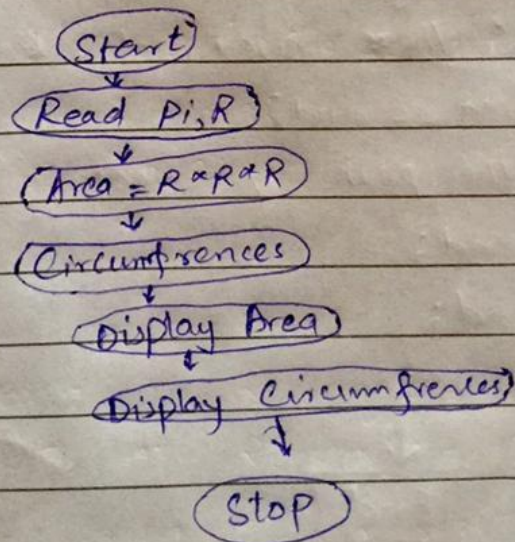 Start
Read Pi, R
Area = R * R * R
Circumfrences
Display Area
Display Circumfrences
Stop